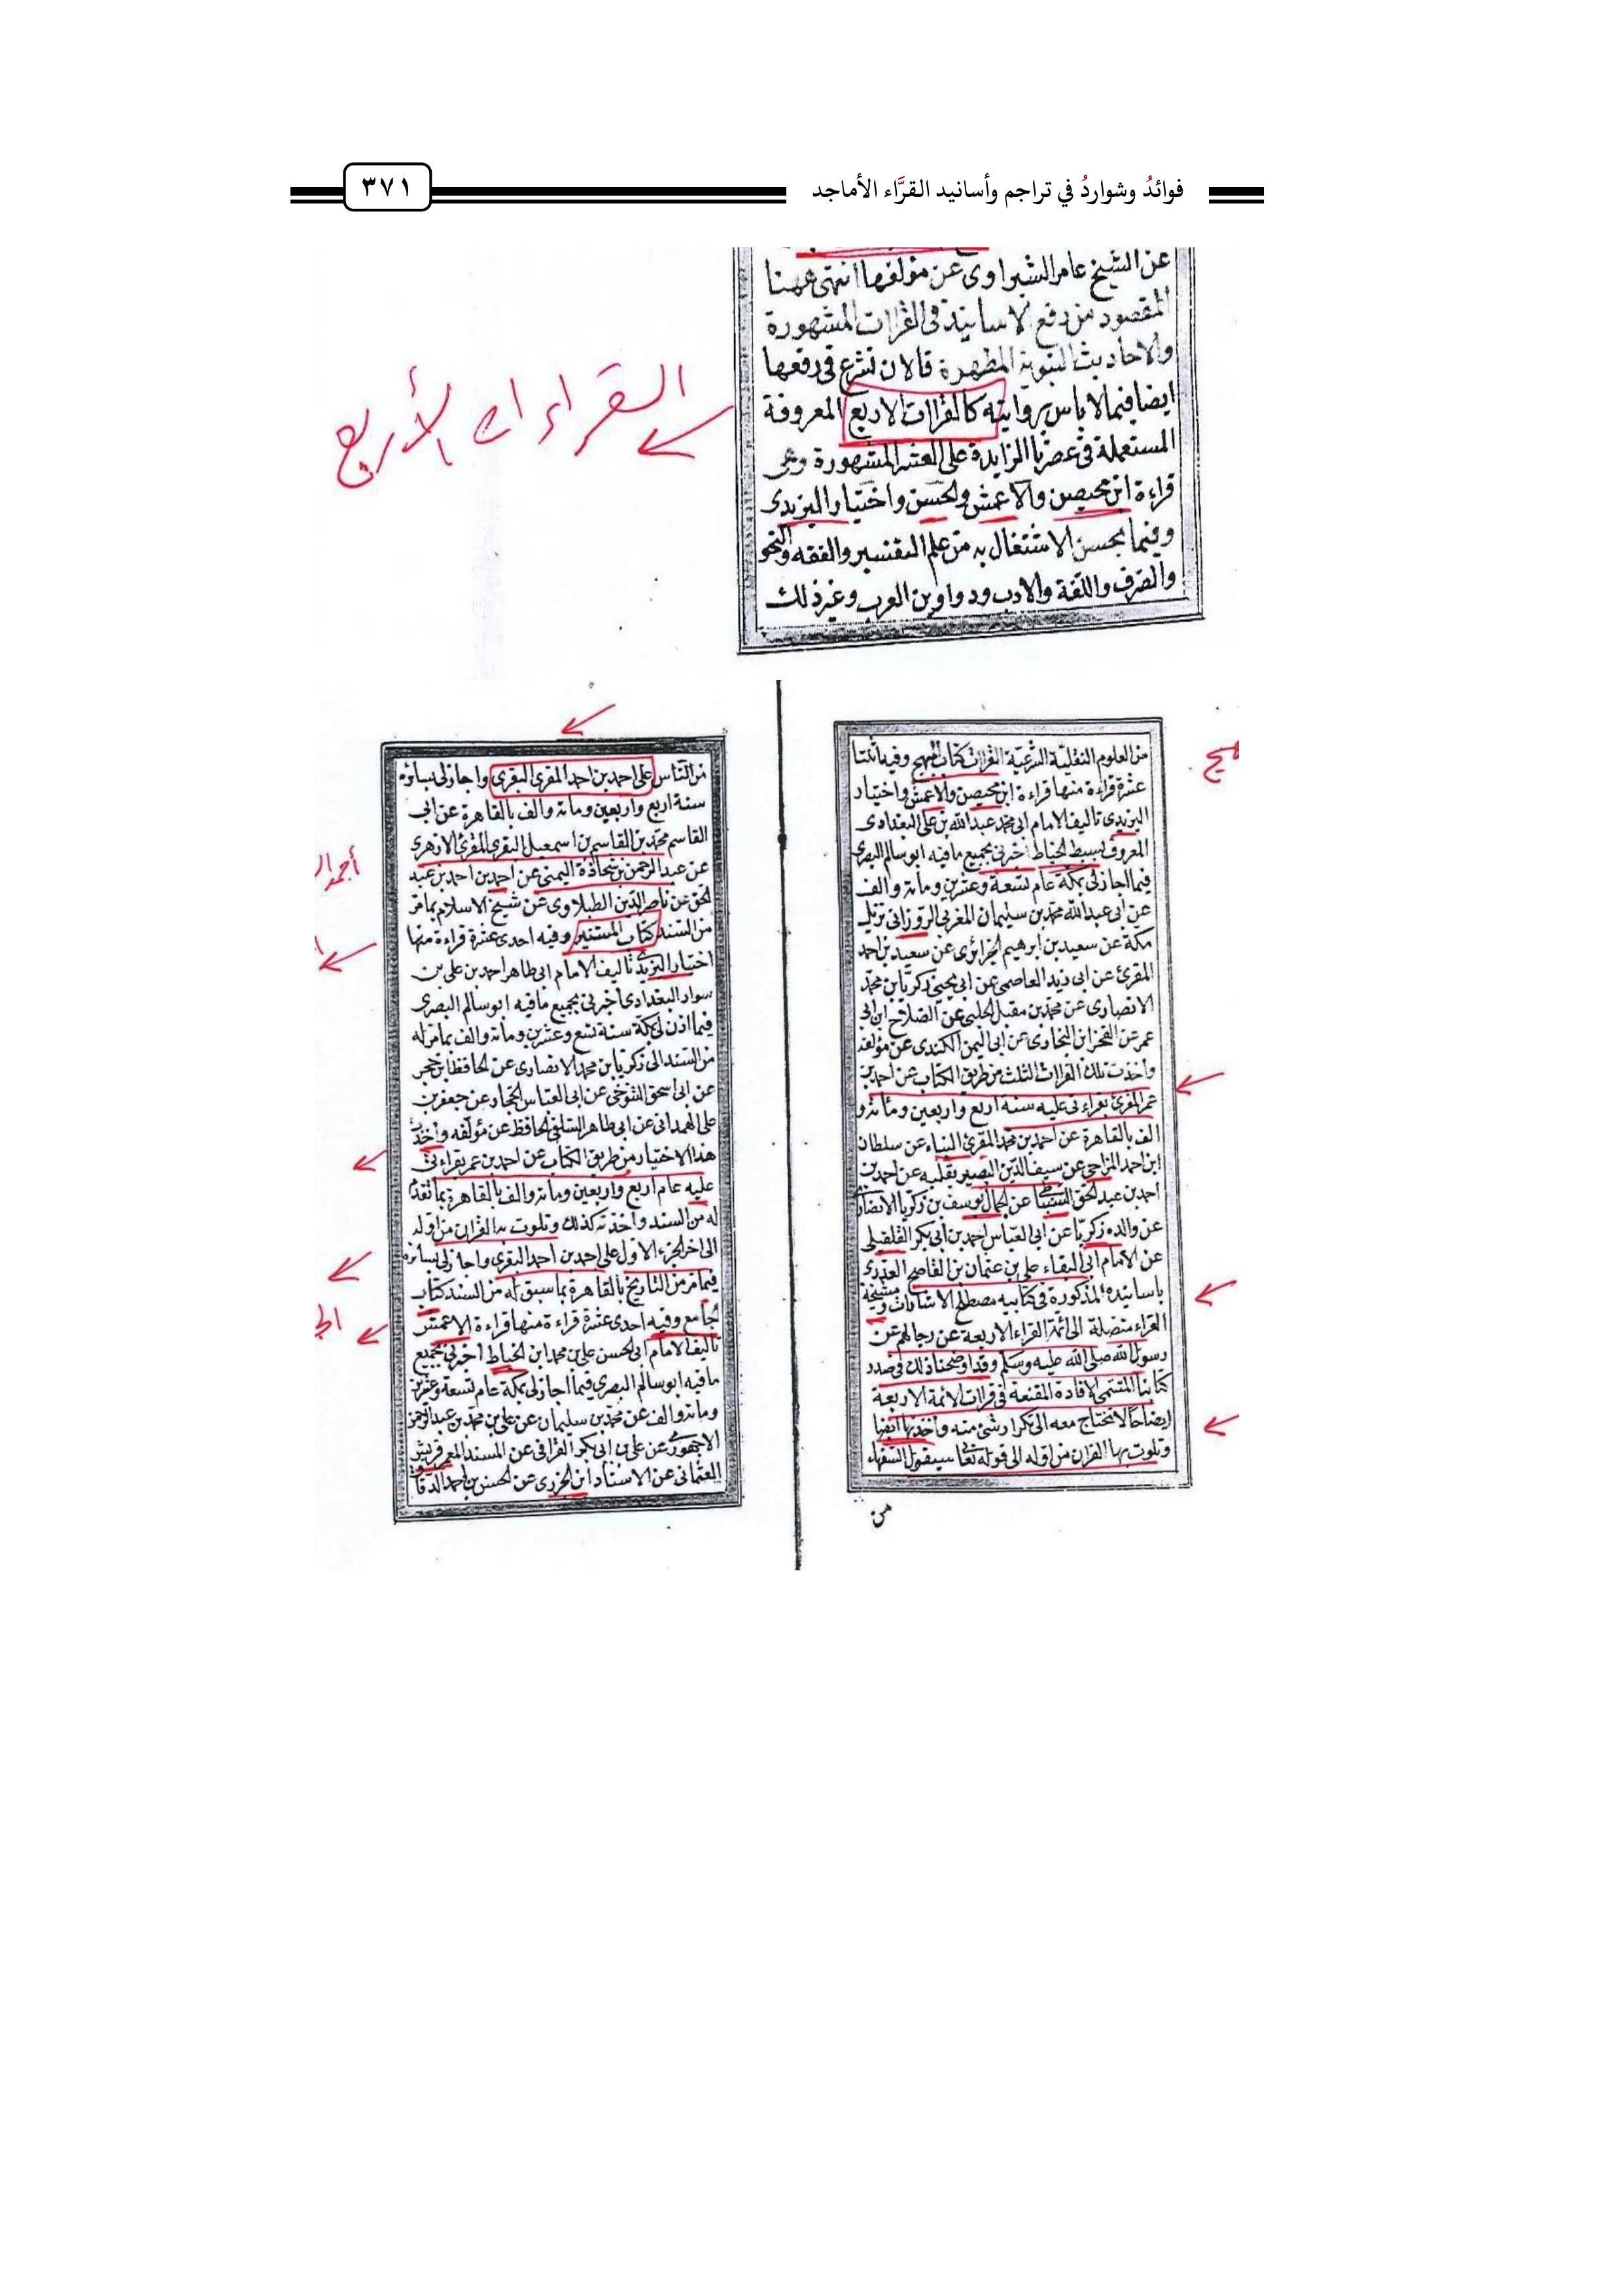 فوائدُ وشواردُ في تراجم وأسانيد القرَّاء الأماجد
٣٧١
عن الشيخ عامر الشبراوى عن مؤلفها انتهى عهنا
المقصود من رفع الاسانيد فى القراات المشهورة
والاحاديث النبوية المطهرة فالان نشرع فى رفعها
ايضا فيما لا باس بروايته كالقراات الاربع المعروفة
المستعملة فى عصرنا الزايدة على العشر المشهورة وهى
قراءة ابن محيصن والاعمش والحسن واختيار اليزيدى
وفيما يحسن الاشتغال به من علم التفسير والفقه والنحو
والصرف واللغة والادب ودواوين العرب وغير ذلك
القراءات الأربع
من العلوم النقلية الشرعية القراات كتاب المبهج وفيه اثنتا
عشرة قراءة منها قراءة ابن محيصن والاعمش واختيار
اليزيدى تاليف الامام ابى محمد عبد الله بن على البغدادى
المعروف بسبط الخياط اخبرنى بجميع ما فيه ابو سالم البصرى
فيما اجاز لى بمكة عام تسعة وعشرين ومائة والف
عن ابى عبد الله محمد بن سليمان المغربى الروزانى نزيل
مكة عن سعيد بن ابرهيم الجزائرى عن سعيد بن احمد
المقرئ عن ابى زيد العاصمى عن ابى يحيى زكريا بن محمد
الانصارى عن محمد بن مقبل الحلبى عن الصلاح ابن ابى
عمر عن الفخر ابن البخارى عن ابى اليمن الكندى عن مؤلفه
واخذت تلك القراات الثلث من طريق الكتاب عن احمد بن
عمر المقرئ بقراءتى عليه سنة اربع واربعين ومائة و
الف بالقاهرة عن احمد بن محمد المقرئ البناء عن سلطان
ابن احمد المزاحى عن سيف الدين البصير بقلبه عن احمد بن
احمد بن عبد الحق السنباطى عن الجمال يوسف بن زكريا الانصارى
عن والده زكريا عن ابى العباس احمد بن ابى بكر القلقيلى
عن الامام ابى البقاء على بن عثمان بن القاصح العذرى
باسانيده المذكورة فى كتابيه مصطلح الاشارات ومشيخة
القراء متصلة الى ائمة القراء الاربعة عن رجالهم عن
رسول الله صلى الله عليه وسلم وقد اوضحنا ذلك فى صدد
كتابنا المسمى الافادة المقنعة فى قراات الائمة الاربعة
ايضاحا لا نحتاج معه الى تكرار شئ منه واخذتها ايضا
وتلوت بها القران من اوله الى قوله تعالى سيقول السفهاء
من
من الناس على احمد بن احمد المقرى البقرى واجاز لى بسائره
سنة اربع واربعين ومائة والف بالقاهرة عن ابى
القاسم محمد بن القاسم بن اسمعيل البقرى المقرئ الازهرى
عن عبد الرحمن بن شحاذة اليمنى عن احمد بن احمد بن عبد
الحق عن ناصر الدين الطبلاوى عن شيخ الاسلام بما مر
من السند كتاب المستنير وفيه احدى عشرة قراءة منها
اختيار اليزيدى تاليف الامام ابى طاهر احمد بن على بن
سوار البغدادى اخبرنى بجميع ما فيه ابو سالم البصرى
فيما اذن لى بمكة سنة تسع وعشرين ومائة والف بما مر له
من السند الى زكريا بن محمد الانصارى عن الحافظ ابن حجر
عن ابى اسحق التنوخى عن ابى العباس الحجار عن جعفر بن
على الهمدانى عن ابى طاهر السلفى الحافظ عن مؤلفه واخذت
هذا الاختيار من طريق الكتاب عن احمد بن عمر بقراءتى
عليه عام اربع واربعين ومائة والف بالقاهرة بما تقدم
له من السند واخذته كذلك وتلوت به القران من اوله
الى اخر الجزء الاول على احمد بن احمد البقرى واجاز لى بسائره
فيما مر من التاريخ بالقاهرة بما سبق له من السند كتاب
الجامع وفيه احدى عشرة قراءة منها قراءة الاعمش
تاليف الامام ابى الحسن على بن محمد ابن الخياط اخبرنى بجميع
ما فيه ابو سالم البصرى فيما اجاز لى بمكة عام تسعة وعشرين
ومائة والف عن محمد بن سليمان عن على بن محمد بن عبد الرحمن
الاجهورى عن على بن ابى بكر القرافى عن المسند المعمر قريش
العثمانى عن الاستاذ ابن الجزرى عن الحسن بن احمد الدقاق